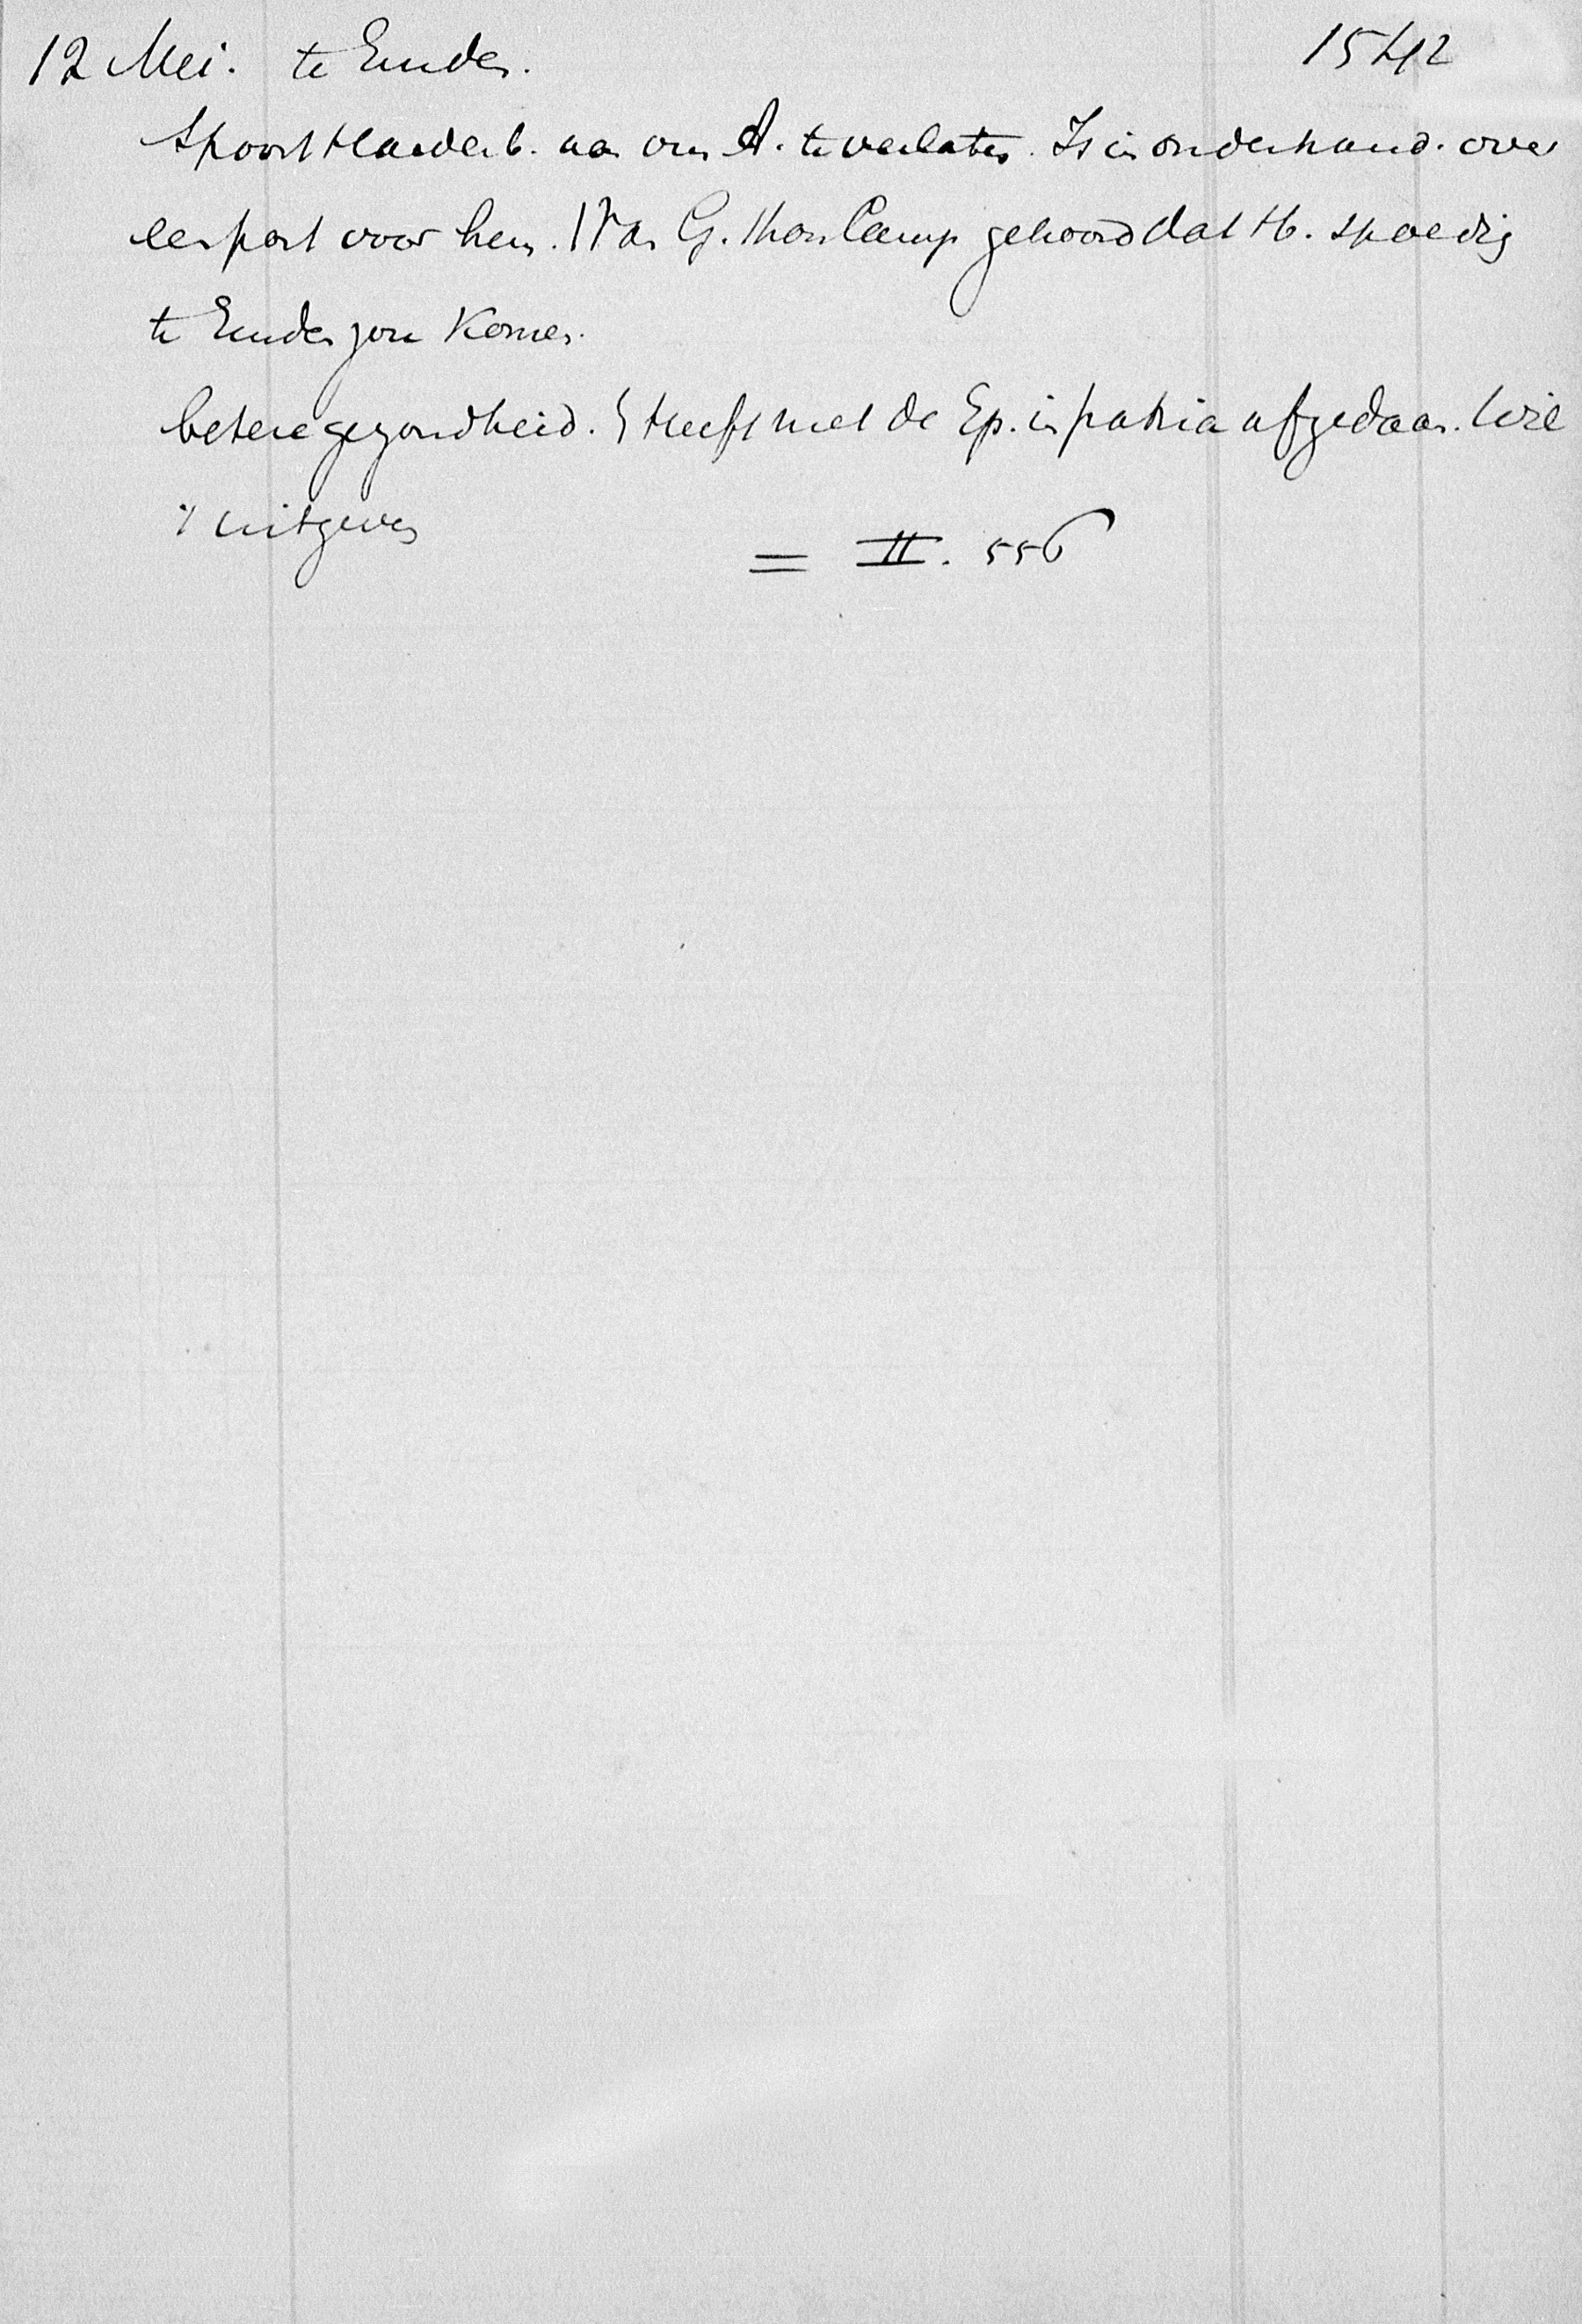 12 Mei. te Emden.
1542
Spoort Hardenb. aan om A. te verlaten. Is in onderhand. over
een post voor hem. Van G. thon Camp gehoord dat H. spoedig
te Emden zou komen.
betere gezondheid. Heeft met de Ep. in patria afgedaan. Wil
't uitgeven
= II. 556